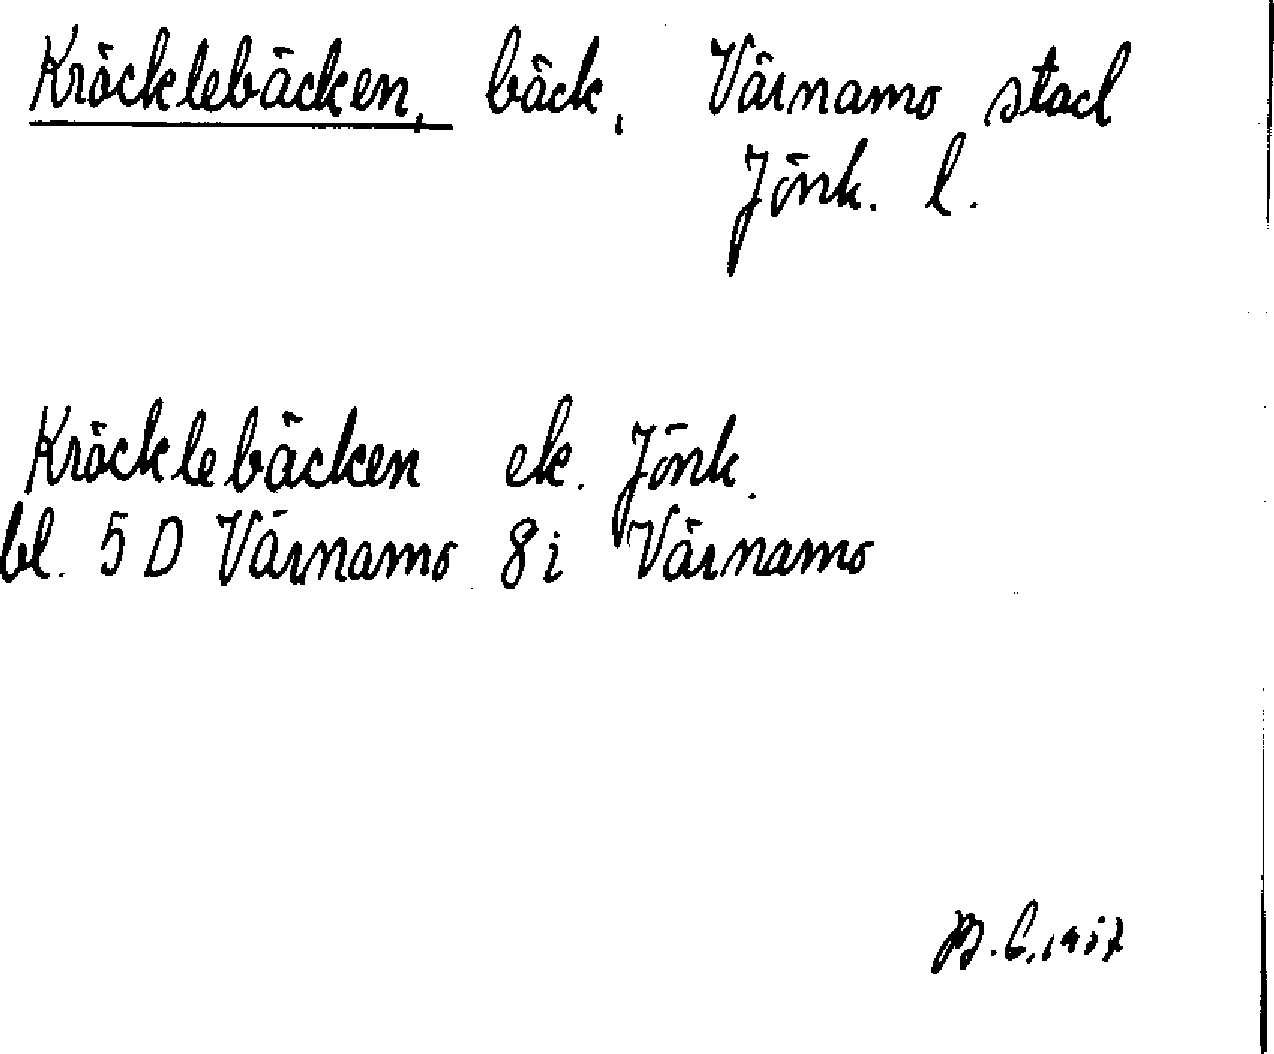 Kröcklebäcken, bäck, Värnamo stad
Jönk. l.
Kröcklebäcken ek. Jönk.
bl. 5 D Värnamo 8 i Värnamo